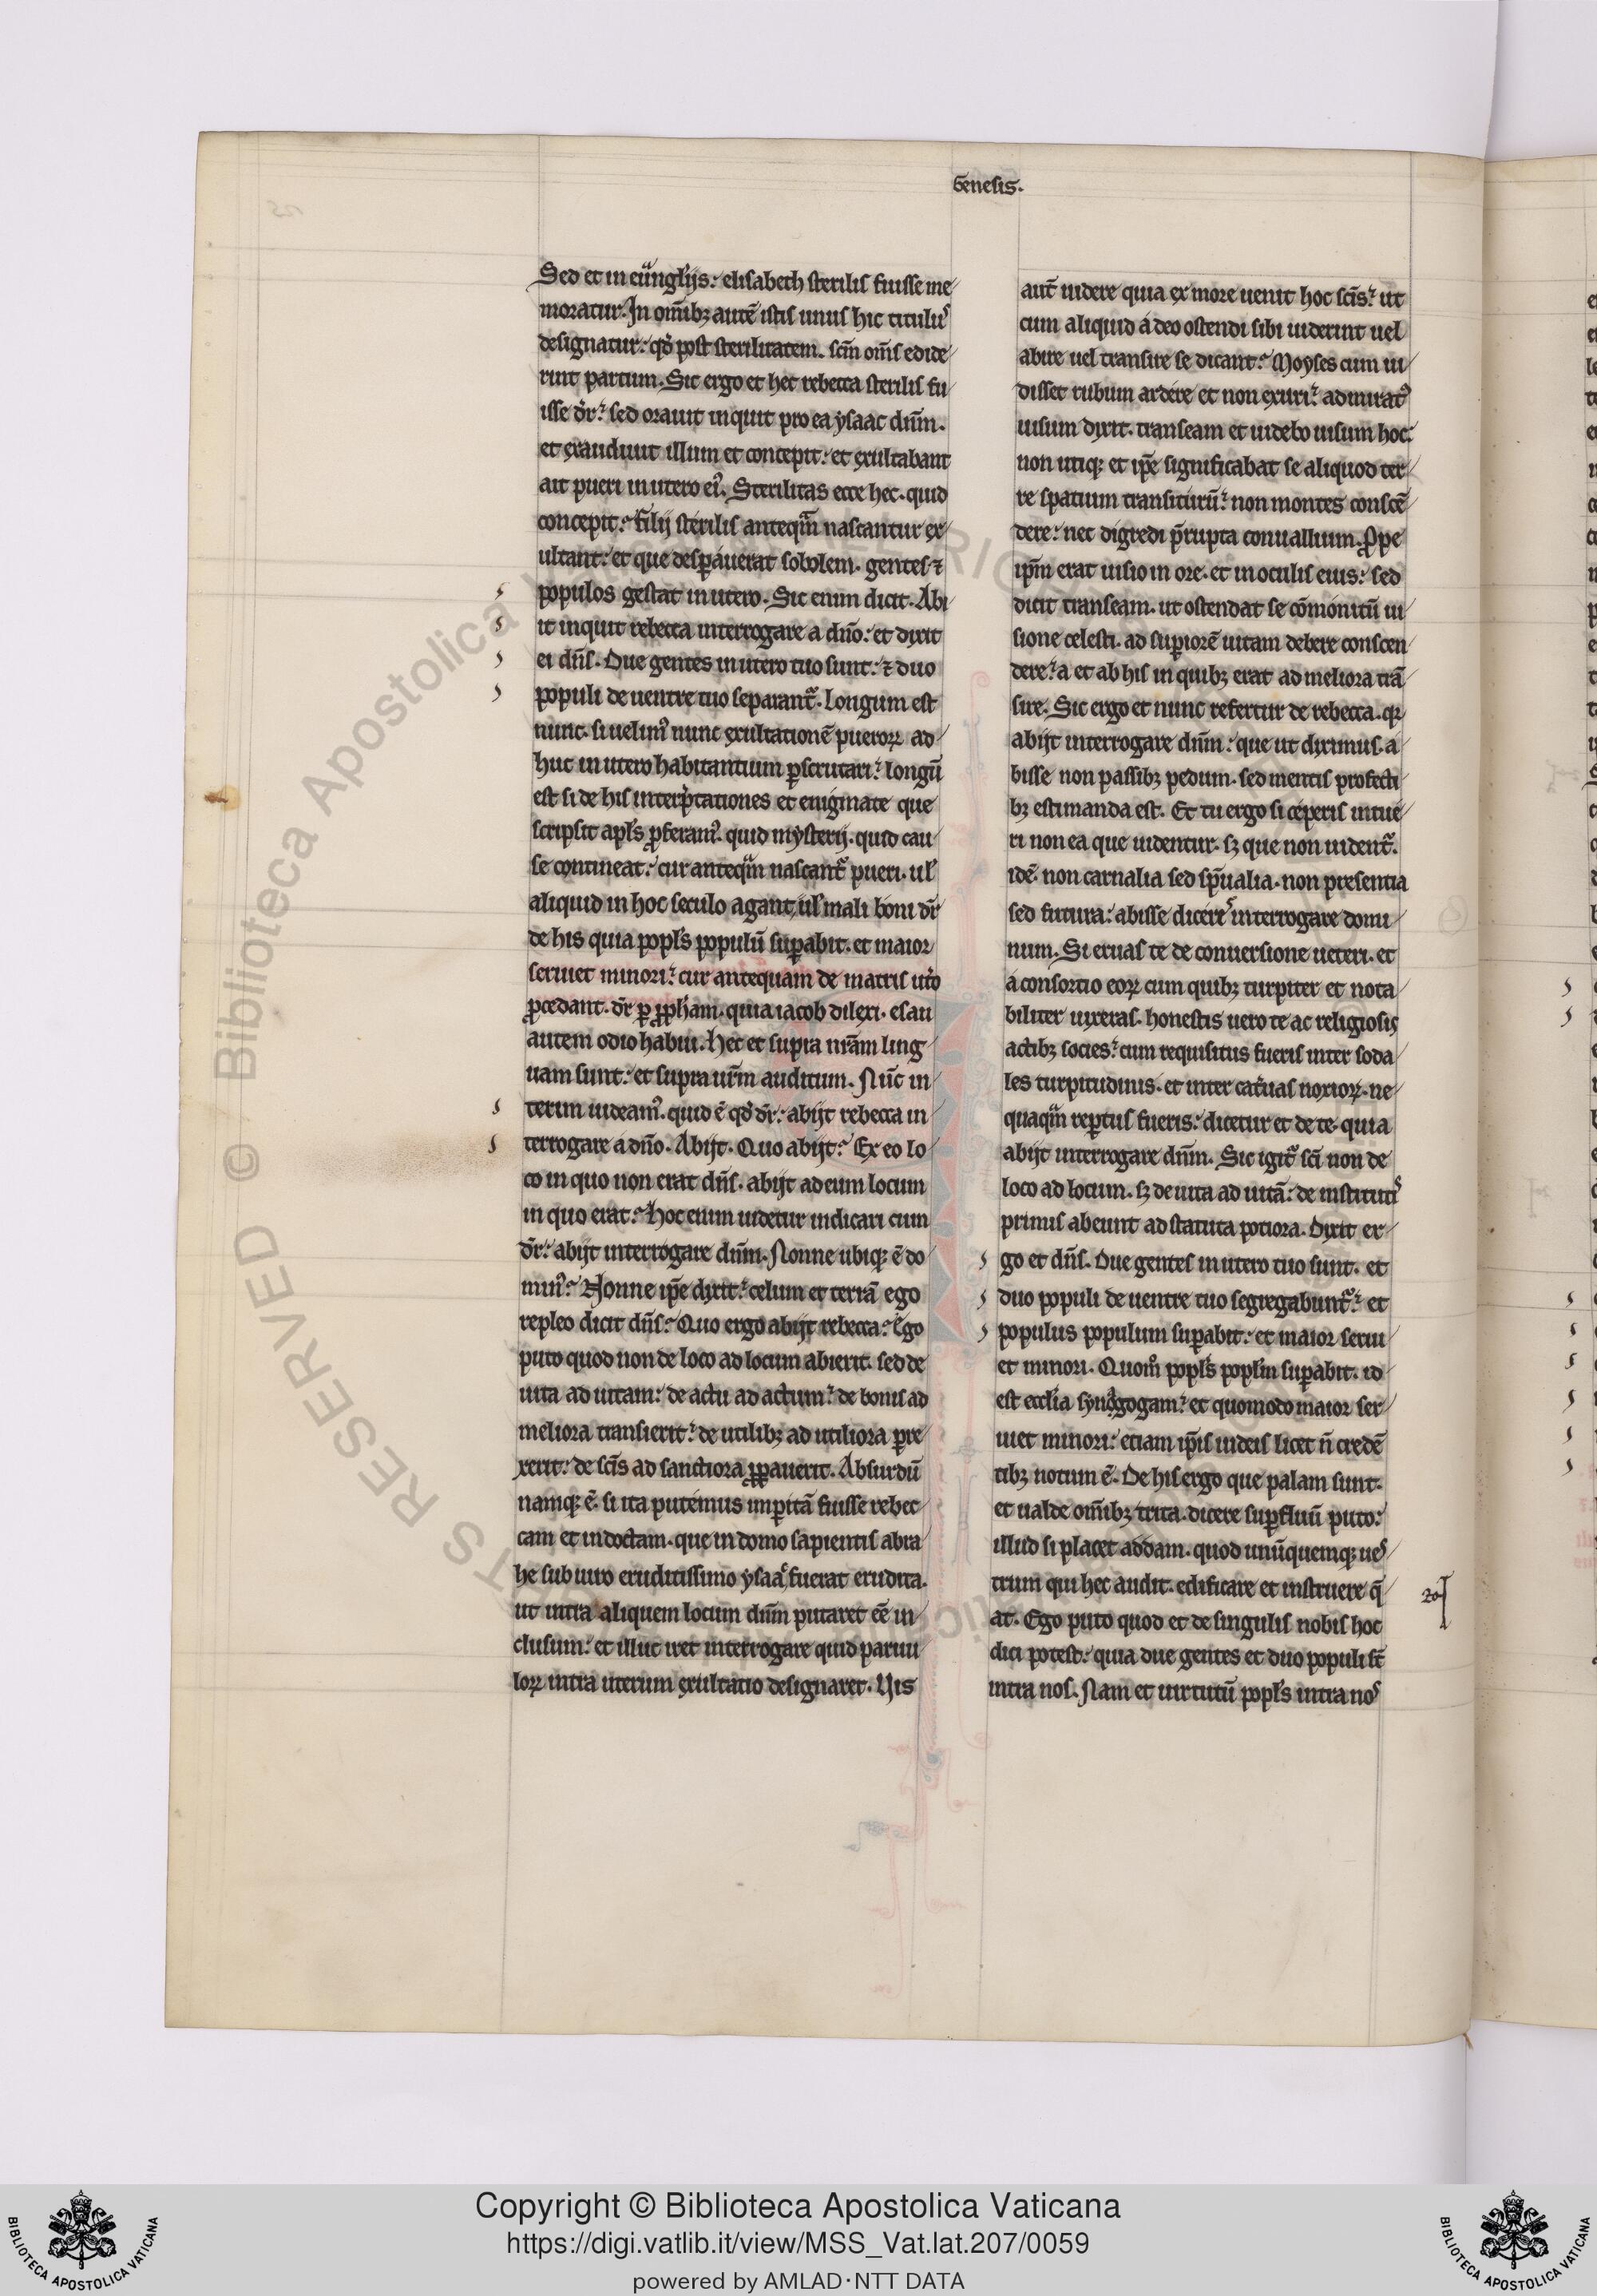 Genesis.
Sed et in eu͛ngl̛ijs: elisabeth sterilis fuisse me
moratur. In om̅ibꝫ autē istis unus hic titulꝰ
designatur: qd̛ post sterilitatem. sc̅m om̅s edide
rint partum. Sic ergo et hec rebecca sterilis fu
isse dr̛: sed orauit inquit pro ea ysaac dn̅m.
et exaudiuit illum et concepit: et exultabant
ait pueri in utero eiꝰ. Sterilitas ecce hec. quid
concepit: Filij sterilis anteqͣm nascantur ex
ultant: et que desꝑauerat sobolem. gentes ⁊
populos gestat in utero. Sic enim dicit. Abi
it inquit rebecca interrogare a dn̅o: et dixit
ei dn̅s. Due gentes in utero tuo sunt: ⁊ duo
populi de uentre tuo separant᷑. Longum est
nunc. si uelimꝰ nunc exultationē pueroꝝ ad
huc in utero habitantium ꝑscrutari: longū
est si de his interp̛tationes et enigmate que
scripsit apl̛s ꝓferamꝰ. quid mysterij. quid cau
se contineat: cur anteqͣm nascant᷑ pueri. ul̛
aliquid in hoc seculo agant, ul̛ mali boni dr̛
de his quia popl̛s populū suꝑabit. et maior
seruiet minori: cur antequam de matris ut̛o
ꝓcedant. dr̛ ꝑ ꝓph̛am. quia iacob dilexi. esau
autem odio habui. Hec et supra nr̅am ling
uam sunt: et supra ur̅m auditum. Nūc in
terim uideamꝰ. quid ē qd̛ dr̛: abijt rebecca in
terrogare a dn̅o. Abijt. Quo abijt: Ex eo lo
co in quo non erat dn̅s. abijt ad eum locum
in quo erat: Hoc enim uidetur indicari cum
dr̛: abijt interrogare dn̅m. Nonne ubiqꝫ ē do
minꝰ: Nonne ip̅e dixit: celum et terrā ego
repleo dicit dn̅s: Quo ergo abijt rebecca: Ego
puto quod non de loco ad locum abierit. sed de
uita ad uitam: de actu ad actum: de bonis ad
meliora transierit: de utilibꝫ ad utiliora ꝑre
xerit: de sc̅is ad sanctiora ꝓꝑauerit. Absurdū
namqꝫ ē. si ita putemus imꝑitā fuisse rebec
cam et indoctam. que in domo sapientis abra
he sub uiro eruditissimo ysaac fuerat erudita.
ut intra aliquem locum dn̅m putaret eē in
clusum: et illuc iret interrogare quid paruu
loꝝ intra uterum exultatio designaret. Vis
aut̅ uidere quia ex more uenit hoc sc̅is: ut
cum aliquid a deo ostendi sibi uiderint uel
abire uel transire se dicant: Moyses cum ui
disset rubum ardere et non exuri: admiratꝰ
uisum dixit. transeam et uidebo uisum hoc.
non utiqꝫ et ip̅e significabat se aliquod ter
re spatium transiturū: non montes conscē
dere: nec digredi p̅rupta conuallium. Prope
ip̅m erat uisio in ore. et in oculis eius: sed
dicit transeam. ut ostendat se cōmonitū ui
sione celesti. ad suꝑiorē uitam debere conscen
dere: a et ab his in quibꝫ erat ad meliora trā
sire. Sic ergo et nunc refertur de rebecca. qꝛ
abijt interrogare dn̅m: que ut diximus. a
bisse non passibꝫ pedum. sed mentis profecti
bꝫ estimanda est. Et tu ergo si ceperis intue
ri non ea que uidentur. sꝫ que non uident᷑.
idē. non carnalia sed sp̅ualia. non presentia
sed futura: abisse diceris interrogare domi
num. Si eruas te de conuersione ueteri. et
a consortio eoꝝ cum quibꝫ turpiter et nota
biliter uixeras. honestis uero te ac religiosis
actibꝫ socies: cum requisitus fueris inter soda
les turpitudinis. et inter cat̛uas noxioꝝ. ne
quaqͣm reꝑtus fueris: dicetur et de te. quia
abijt interrogare dn̅m. Sic igit᷑ sc̅i non de
loco ad locum. sꝫ de uita ad uitā: de institutis
primis abeunt ad statuta potiora. Dixit er
go et dn̅s. Due gentes in utero tuo sunt. et
duo populi de uentre tuo segregabunt᷑: et
populus populum suꝑabit: et maior serui
et minori. Quomͦ popl̛s popl̛m suꝑabit. id
est eccl̛ia synagogam: et quomodo maior ser
uiet minori: etiam ip̅is iudeis licet n̅ credē
tibꝫ notum ē. De his ergo que palam sunt.
et ualde om̅ibꝫ trita. dicere suꝑfluū puto:
illud si placet addam. quod unūquemqꝫ ues
trum qui hec audit. edificare et instruere q̅
at. Ego puto quod et de singulis nobis hoc
dici potest: quia due gentes et duo populi st̅
intra nos. Nam et uirtutū popl̛s intra nos
Copyright © Biblioteca Apostolica Vaticana
https://digi.vatlib.it/view/MSS_Vat.lat.207/0059
powered by AMLAD·NTT DATA